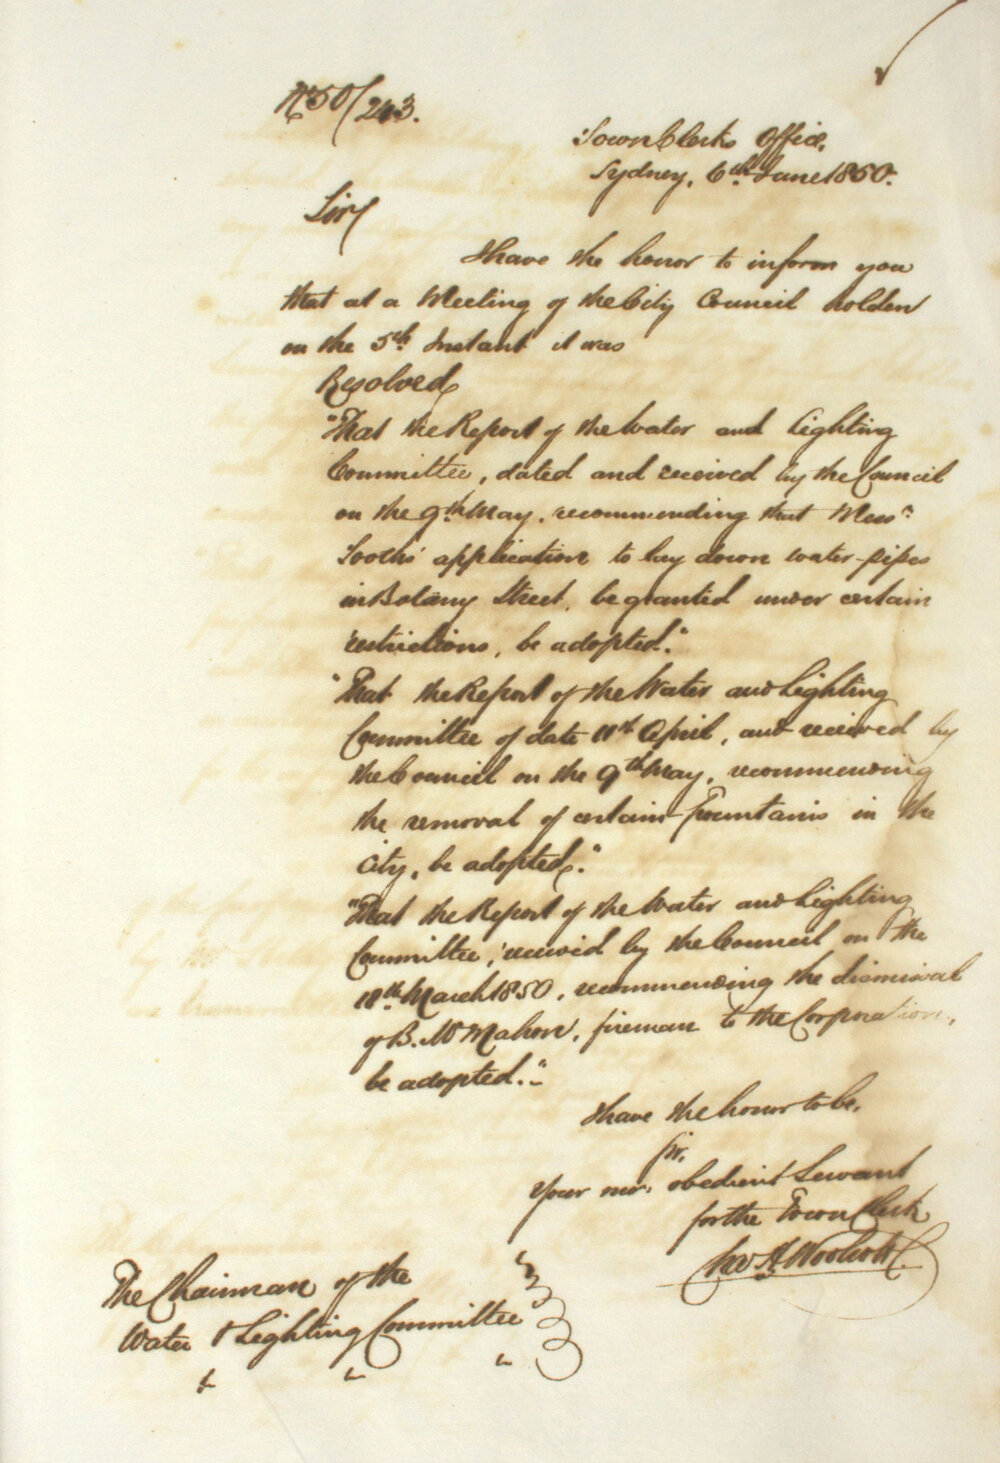 No 50/243.
Town Clerks Office,
Sydney, 6th June 1850.
Sir
I have the honor to inform you
that at a Meeting of the City Council holden
on the 5th Instant it was
Resolved,
"That the Report of the Water and Lighting
Committee, dated and received by the Council
on the 9th May, recommending that Messrs
Tooths' application to lay down water-pipes
in Botany Street, be granted under certain
restrictions, be adopted."
"That the Report of the Water and Lighting
Committee of date 11th April, and received by
the Council on the 9th May, recommending
the removal of certain Fountains in the
City, be adopted."
"That the Report of the Water and Lighting
Committee, received by the Council on the
18th March 1850, recommending the dismissal
of B. McMahon, fireman to the Corporation,
be adopted."
I have the honor to be,
Sir,
Your mo: obedient Servant
for the Town Clerk
Woolcott
The Chairman of the
Water & Lighting Committee